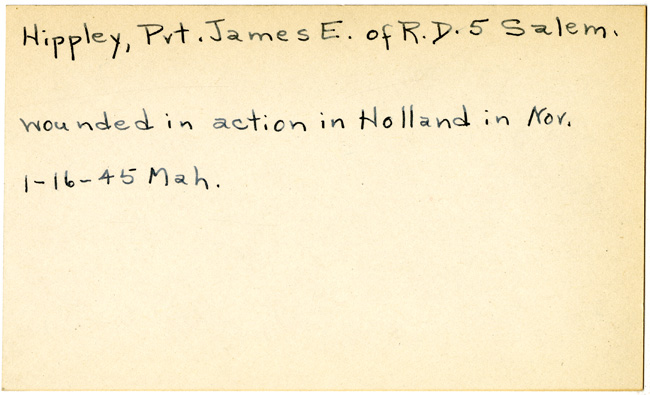 Hippley, Pvt. James E. of R.D. 5 Salem.
wounded in action in Holland in Nov.
1-16-45 Mah.